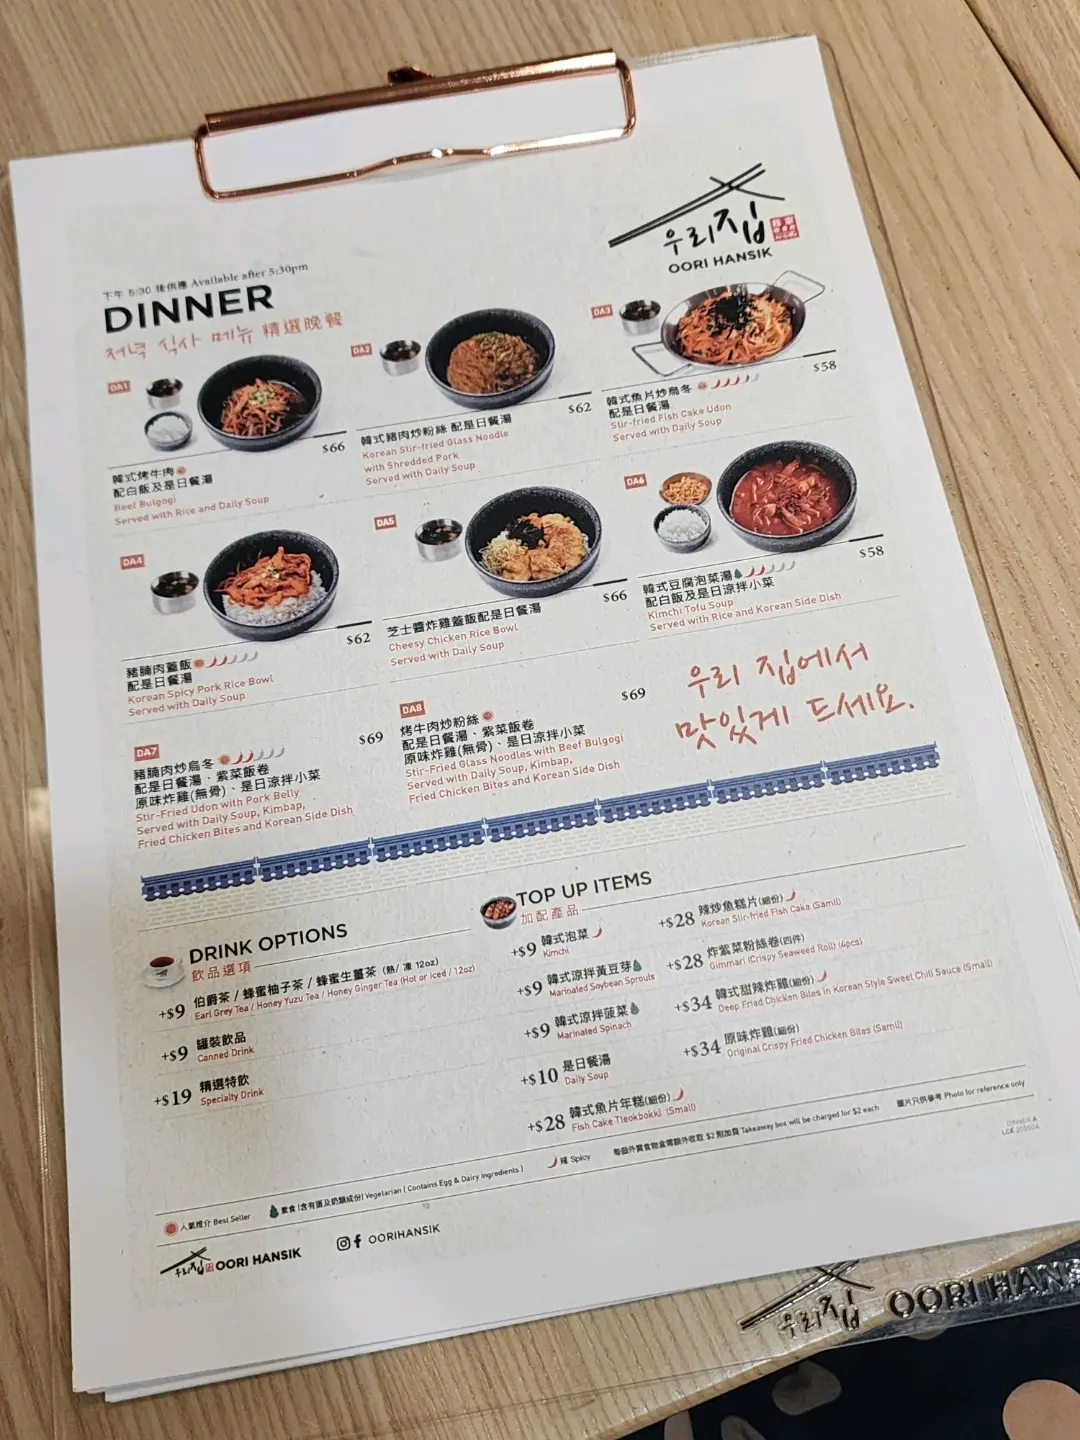 우리집
OORI HANSIK
下午 5:30 後供應 Available after 5:30pm
DINNER
저녁 식사 메뉴 精選晚餐
DA1
$66
韓式烤牛肉
配白飯及是日餐湯
Beef Bulgogi
Served with Rice and Daily Soup
DA2
$62
韓式豬肉炒粉絲 配是日餐湯
Korean Stir-fried Glass Noodle
with Shredded Pork
Served with Daily Soup
DA3
$58
韓式魚片炒烏冬
配是日餐湯
Stir-fried Fish Cake Udon
Served with Daily Soup
DA4
$62
豬腩肉蓋飯
配是日餐湯
Korean Spicy Pork Rice Bowl
Served with Daily Soup
DA5
$66
芝士醬炸雞蓋飯配是日餐湯
Cheesy Chicken Rice Bowl
Served with Daily Soup
DA6
$58
韓式豆腐泡菜湯
配白飯及是日涼拌小菜
Kimchi Tofu Soup
Served with Rice and Korean Side Dish
DA7
$69
豬腩肉炒烏冬
配是日餐湯、紫菜飯卷
原味炸雞(無骨)、是日涼拌小菜
Stir-Fried Udon with Pork Belly
Served with Daily Soup, Kimbap,
Fried Chicken Bites and Korean Side Dish
DA8
$69
烤牛肉炒粉絲
配是日餐湯、紫菜飯卷
原味炸雞(無骨)、是日涼拌小菜
Stir-Fried Glass Noodles with Beef Bulgogi
Served with Daily Soup, Kimbap,
Fried Chicken Bites and Korean Side Dish
우리 집에서
맛있게 드세요.
DRINK OPTIONS
飲品選項
+$9 伯爵茶 / 蜂蜜柚子茶 / 蜂蜜生薑茶 (熱/ 凍 12oz)
Earl Grey Tea / Honey Yuzu Tea / Honey Ginger Tea (Hot or Iced / 12oz)
+$9 罐裝飲品
Canned Drink
+$19 精選特飲
Specialty Drink
TOP UP ITEMS
加配產品
+$9 韓式泡菜
Kimchi
+$9 韓式涼拌黃豆芽
Marinated Soybean Sprouts
+$9 韓式涼拌菠菜
Marinated Spinach
+$10 是日餐湯
Daily Soup
+$28 韓式魚片年糕(細份)
Fish Cake Tteokbokki (Small)
+$28 辣炒魚糕片(細份)
Korean Stir-fried Fish Cake (Samll)
+$28 炸紫菜粉絲卷(四件)
Gimmari (Crispy Seaweed Roll) (4pcs)
+$34 韓式甜辣炸雞(細份)
Deep Fried Chicken Bites in Korean Style Sweet Chili Sauce (Small)
+$34 原味炸雞(細份)
Original Crispy Fried Chicken Bites (Samll)
人氣推介 Best Seller
素食 (含有蛋及奶類成份) Vegetarian ( Contains Egg & Dairy Ingredients )
辣 Spicy
每個外賣食物盒需額外收取 $2 附加費 Takeaway box will be charged for $2 each
圖片只供參考 Photo for reference only
DINNER A
우리집 OORI HANSIK
OORIHANSIK
우리집 OORI HANS